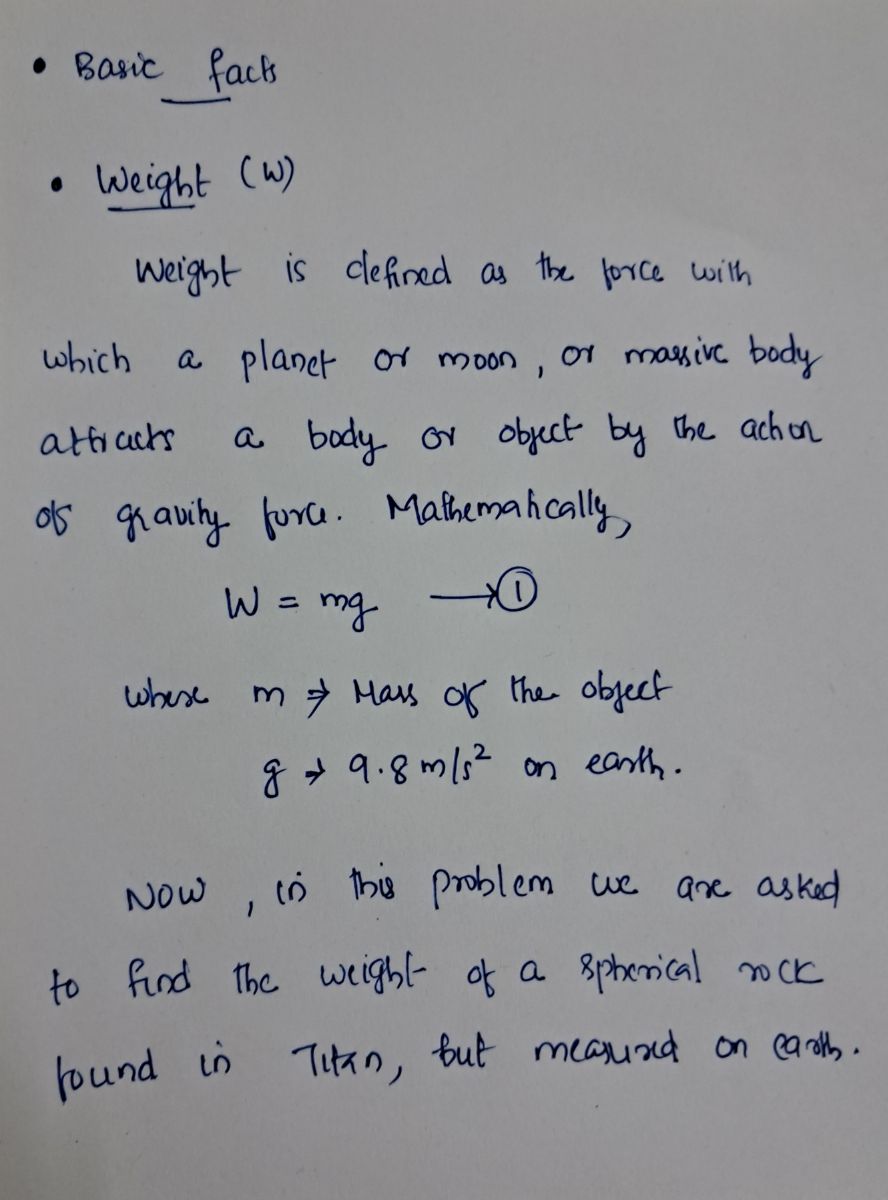 • Basic facts
• Weight (W)
Weight is defined as the force with
which a planet or moon, or massive body
attracts a body or object by the action
of gravity force. Mathematically,
W = mg ⟶ ①
where m ⇒ Mass of the object
g → 9.8 m/s² on earth.
NOW, in this problem we are asked
to find the weight of a spherical rock
found in Titan, but measured on earth.